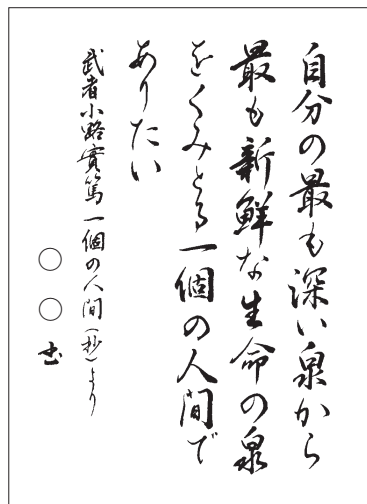 自分の最も深い泉から
最も新鮮な生命の泉
をくみとる一個の人間で
ありたい
武者小路實篤一個の人間（抄）より
○○書